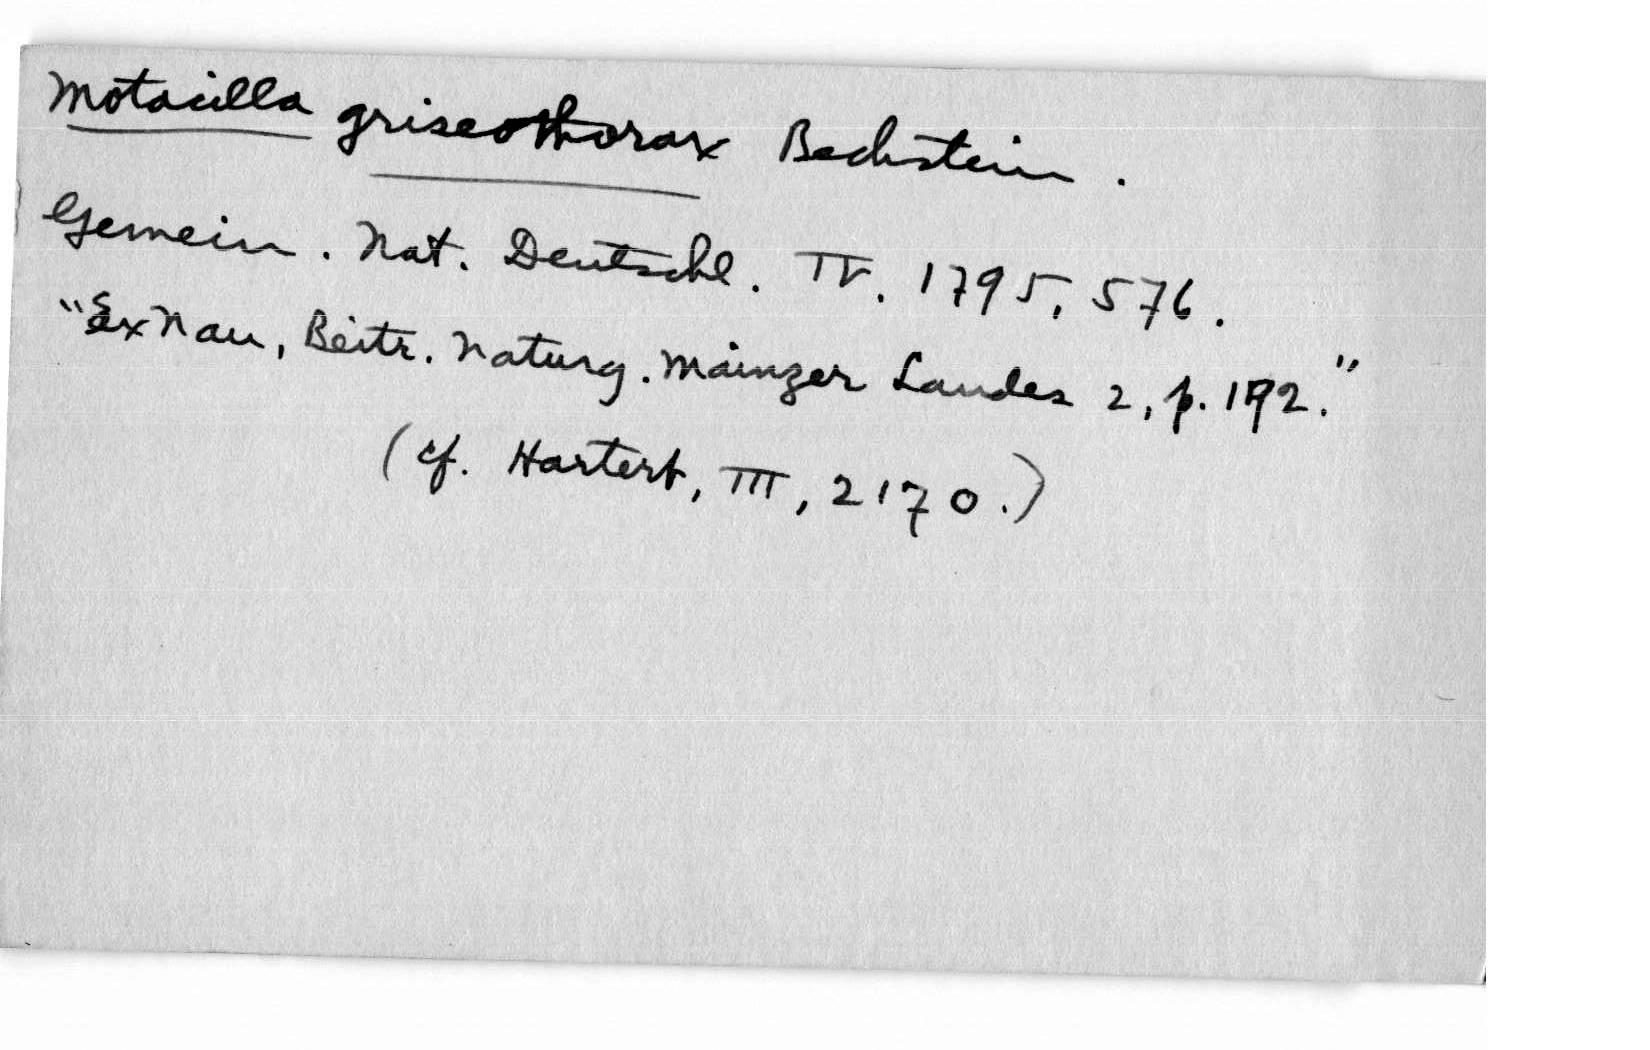 Motacilla griseothorax Bechstein.
Gemein. Nat. Deutschl. IV. 1795, 576.
"Ex Nau, Beitr. Naturg. Mainzer Landes 2, p. 192."
(cf. Hartert, III, 2170.)